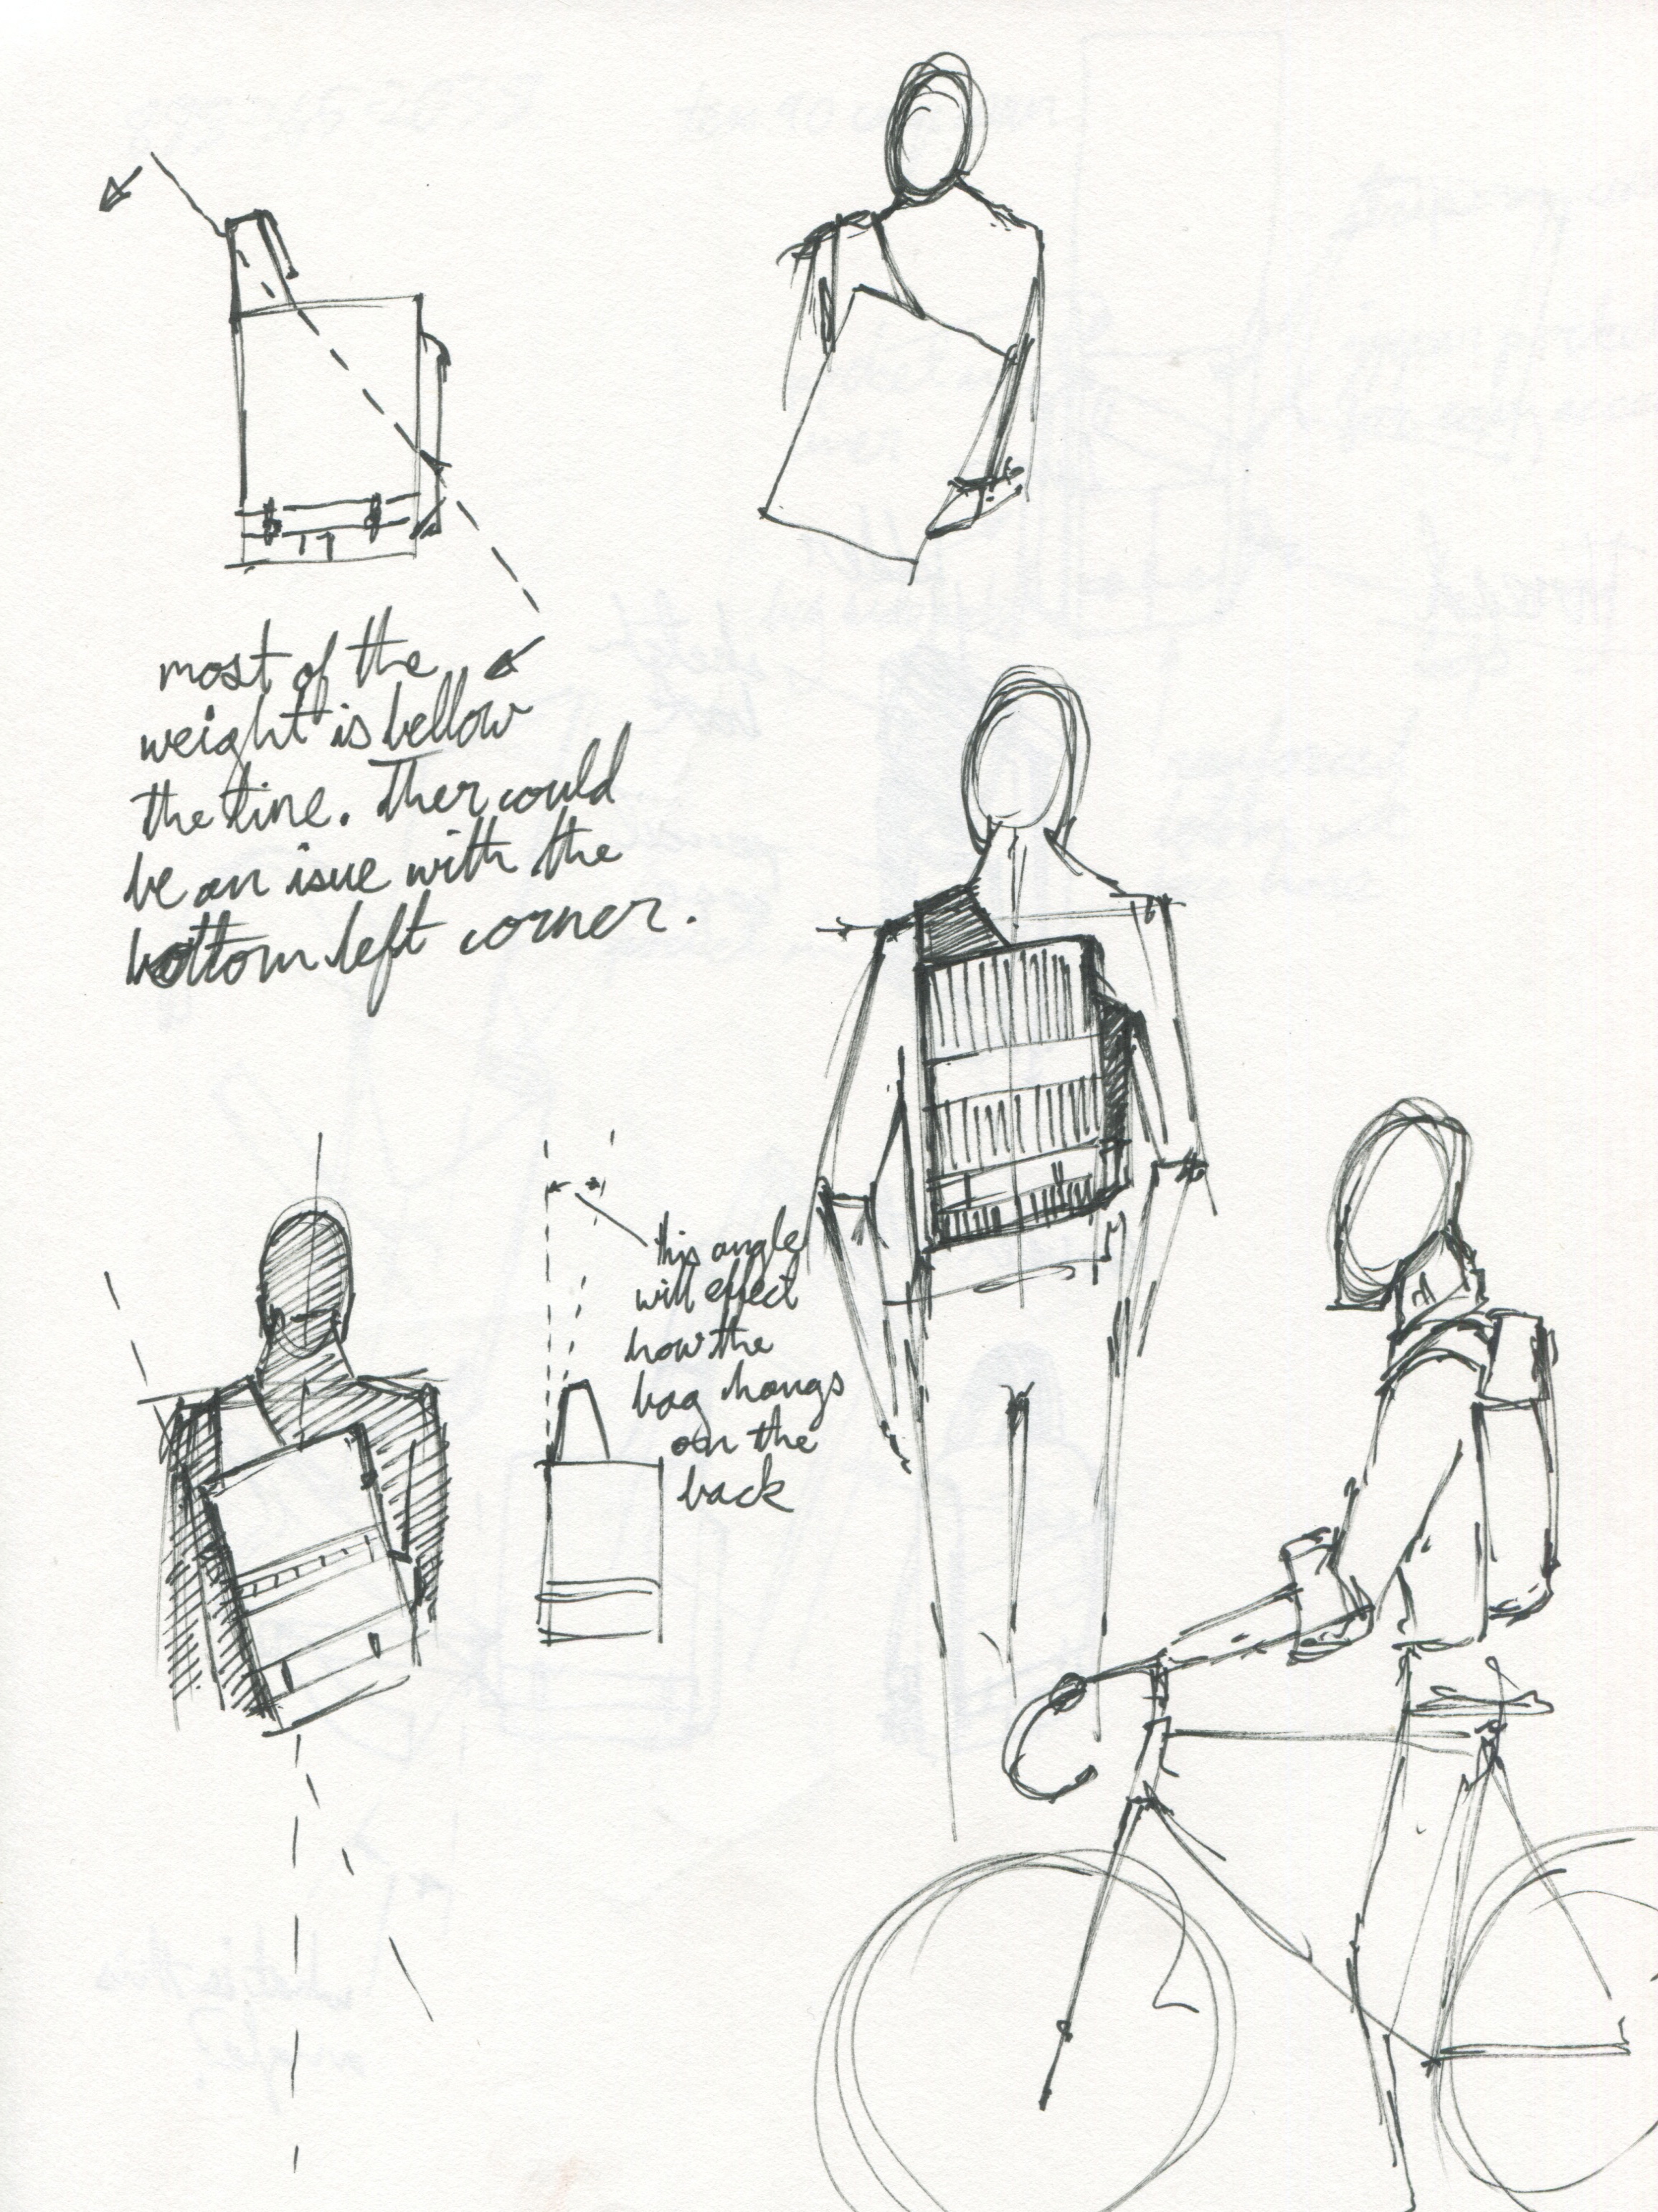 most of the
weight is bellow
the line. Ther could
be an isue with the
bottom left corner.
this angle
will effect
how the
bag hangs
on the
back